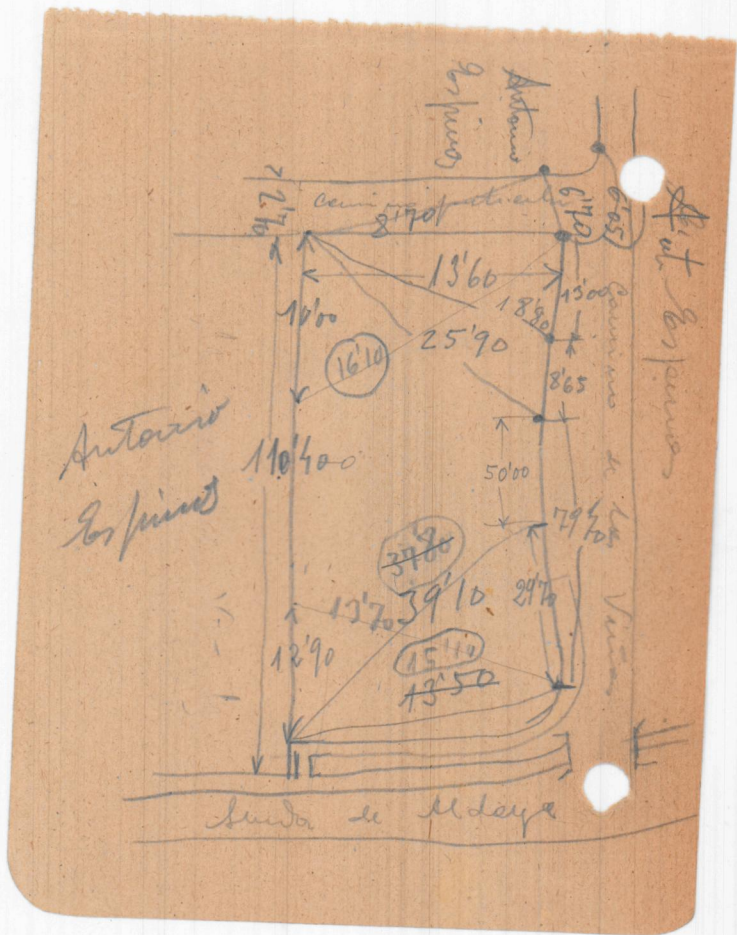 Antonio
Espinos
Espinos
camino particular
2'70
8'70
6'70
6'05
13'60
10'00
18'80
13'00
25'90
16'10
8'65
Camino de las Viñas
Antonio
Espinos
110'40
50'00
79'70
37'80
39'10
29'70
13'70
12'90
15'10
13'50
de Aldaya